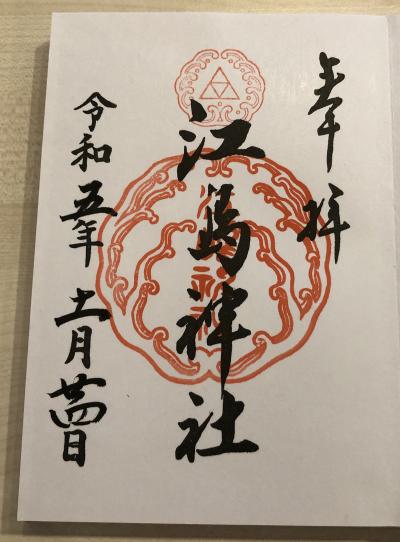 奉拝
江島神社
令和五年十一月廿四日